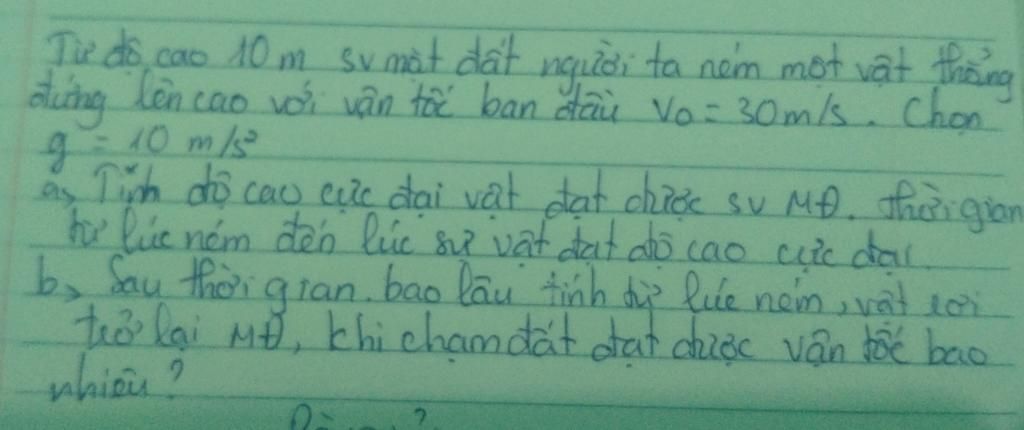 Từ độ cao 10 m sv mặt đất người ta ném một vật thẳng
đứng lên cao với vận tốc ban đầu v₀ = 30m/s. Chọn
g = 10 m/s²
a, Tính độ cao cực đại vật đạt được sv MĐ. Thời gian
từ lúc ném đến lúc vật đạt độ cao cực đại.
b, Sau thời gian bao lâu tính từ lúc ném, vật rơi
trở lại MĐ, khi chạm đất đạt được vận tốc bao
nhiêu?